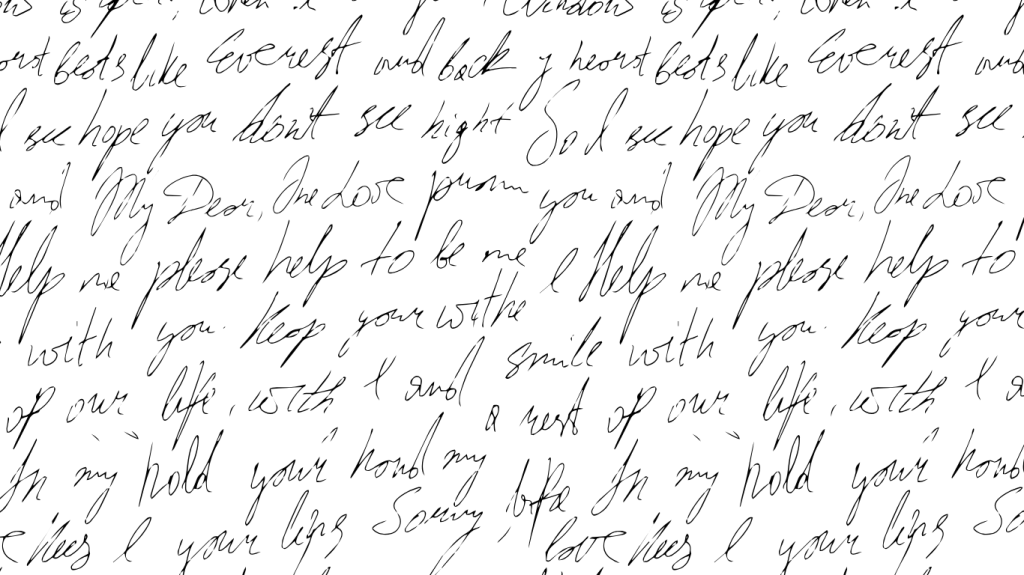 Windows is
heart beats like Everest and back y heart beats like Everest and
I see hope you don't see night So I see hope you don't see
and My Dear, One Love you and My Dear, One Love
Help me please help to be me I Help me please help to
with you. Keep your withe smile with you. Keep your
of our life, with I and a rest of our life, with I a
In my hold your hand my life In my hold your hand
kiss I your lips Sorry, love kiss I your lips So